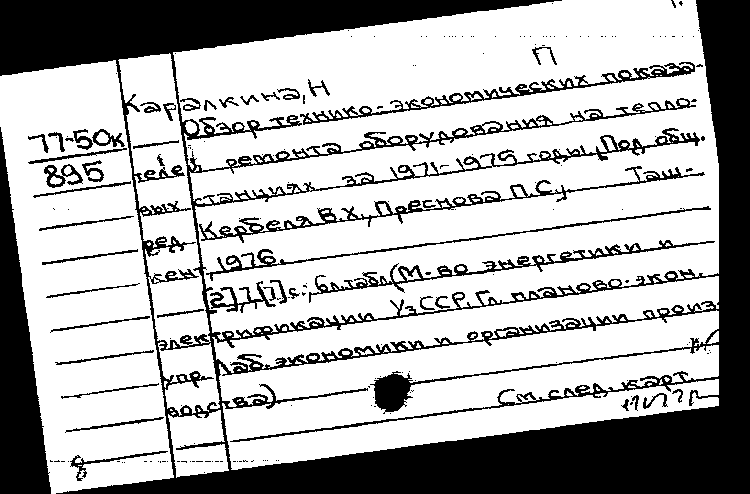 П
Каралкина, Н
77-50к
895
Обзор технико-экономических показа-
телей ремонта оборудования на тепло-
вых станциях за 1971-1975 годы. Под общ.
ред. Кербеля В.Х., Преснова П.С. Таш-
кент, 1976.
[2], 7, [1] с.; 6 л. табл. (М-во энергетики и
электрификации УзССР. Гл. планово-экон.
упр. Лаб. экономики и организации произ-
водства).
См. след. карт.
8